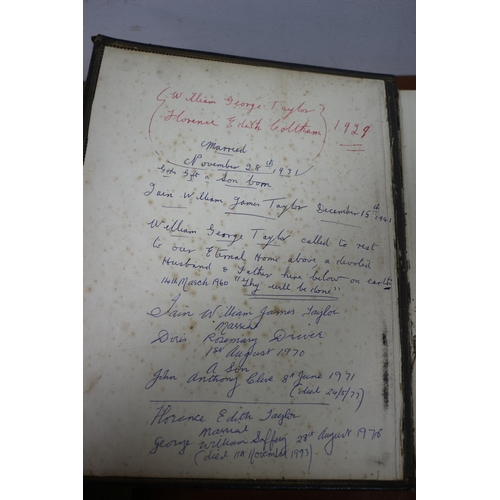 (William George Taylor)
(Florence Edith Coltham) 1929
Married
November 28th 1931
Gods Gift a Son born
Iain William James Taylor December 15th 1941
William George Taylor called to rest
to our Eternal Home above a devoted
Husband & Father here below on earth
14th March 1960 "Thy will be done"
Iain William James Taylor
Married
Doris Rosemary Driver
1st August 1970
A Son
John Anthony Clive 8th June 1971
(died 24/5/77)
Florence Edith Taylor
Married
George William 28th August 1976
(died 11th November 1993)